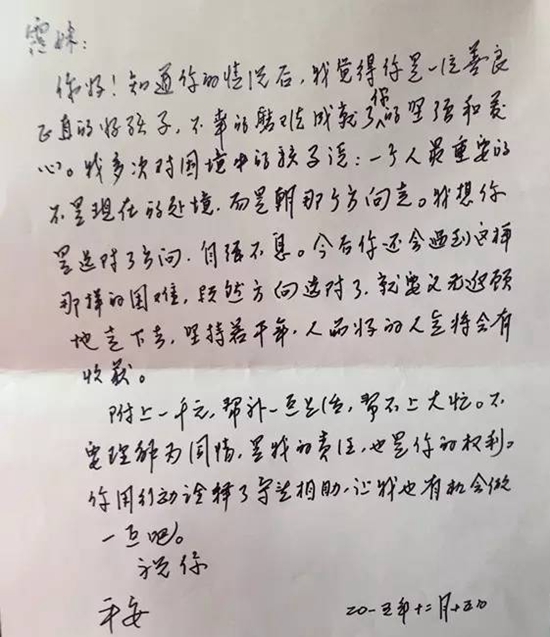 霞妹：
你好！知道你的情况后，我觉得你是一位善良
正直的好孩子，不幸的磨难成就了你的坚强和爱
心。我多次对困境中的孩子说：一个人最重要的
不是现在的处境，而是朝那个方向走。我想你
是选对了方向，自强不息。今后你还会遇到这样
那样的困难，既然方向选对了，就要义无返顾
地走下去，坚持若干年，人品好的人定将会有
收获。
附上一千元，帮补一点生活，帮不上大忙。不
要理解为同情，是我的责任，也是你的权利。
你用行动诠释了守望相助，让我也有机会做
一点吧。
祝你
平安
二0一五年十二月十五日